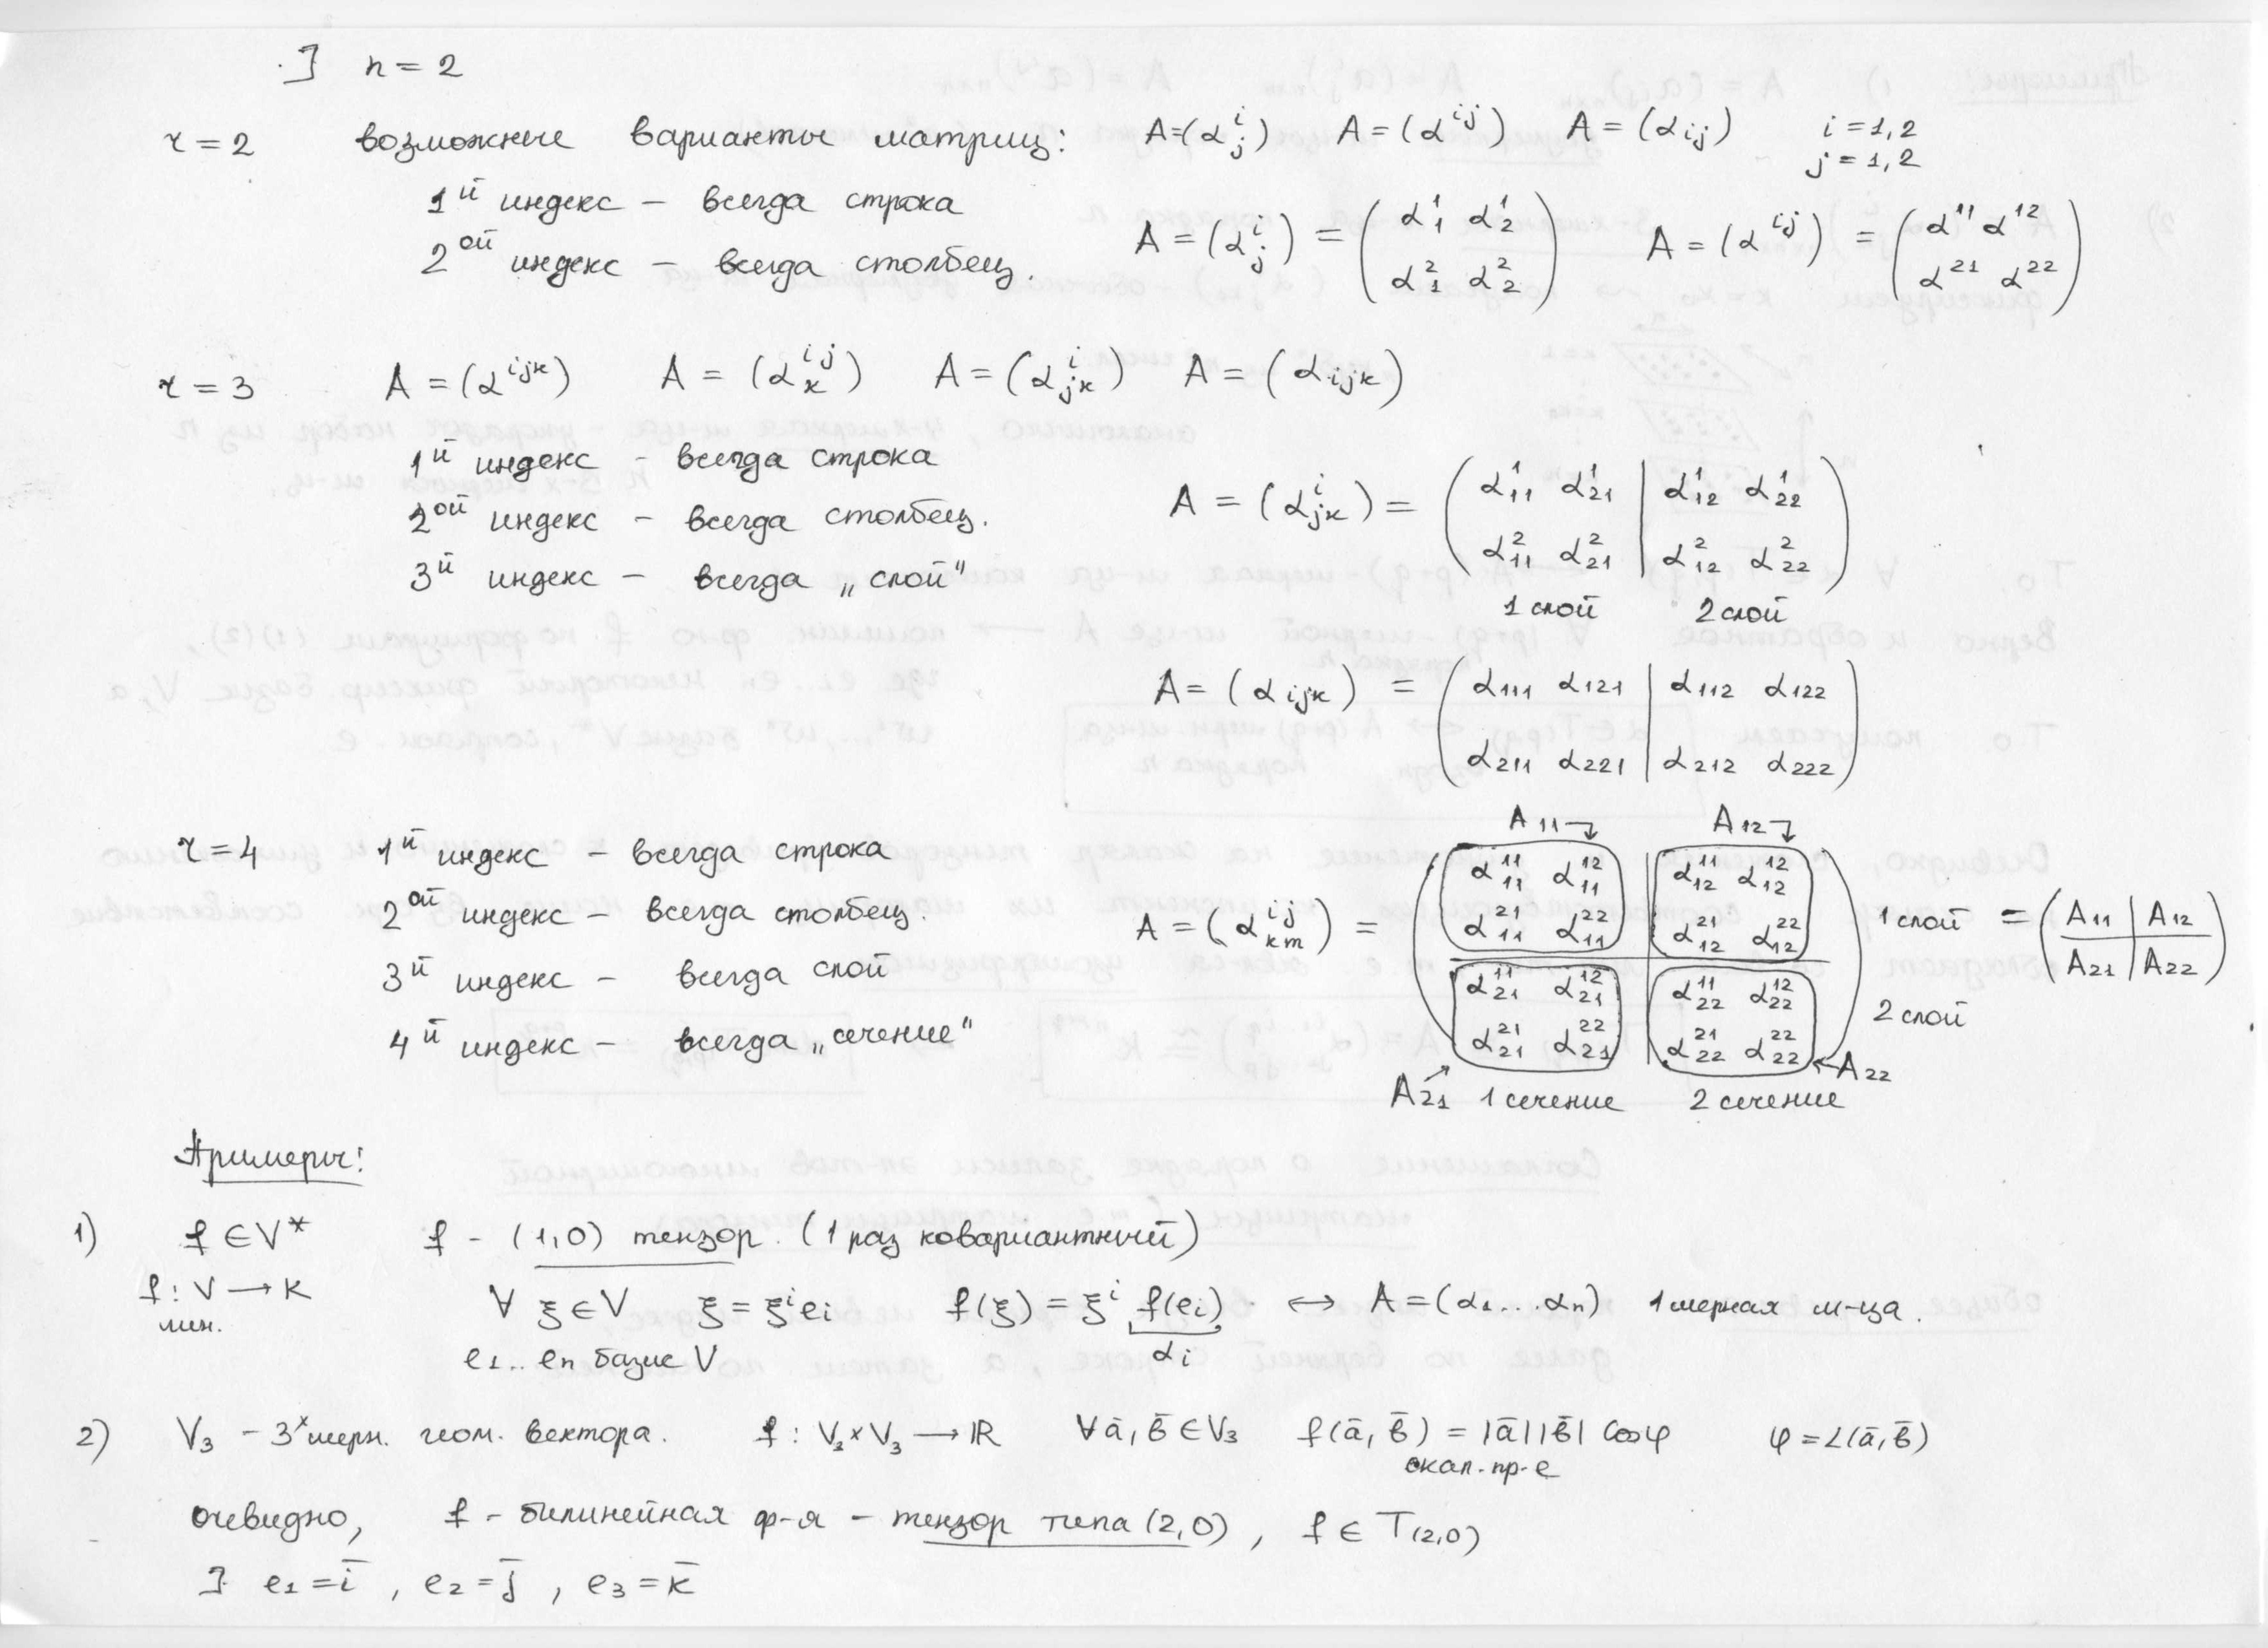 ] n = 2
r = 2 возможные варианты матриц: A=(α^i_j) A=(α^{ij}) A=(α_{ij}) i=1,2 j=1,2
1й индекс – всегда строка
2ой индекс – всегда столбец.
A = (α^i_j) = ( α^1_1 α^1_2
α^2_1 α^2_2 )
A = (α^{ij}) = ( α^{11} α^{12}
α^{21} α^{22} )
r = 3 A = (α^{ijk}) A = (α^{ij}_k) A = (α^i_{jk}) A = (α_{ijk})
1й индекс – всегда строка
2ой индекс – всегда столбец.
3й индекс – всегда „слой"
A = (α^i_{jk}) = ( α^1_{11} α^1_{21} | α^1_{12} α^1_{22}
α^2_{11} α^2_{21} | α^2_{12} α^2_{22} )
1 слой 2 слой
A = (α_{ijk}) = ( α_{111} α_{121} | α_{112} α_{122}
α_{211} α_{221} | α_{212} α_{222} )
r = 4 1й индекс – всегда строка
2ой индекс – всегда столбец.
3й индекс – всегда слой
4й индекс – всегда „сечение"
A_{11} A_{12}
A = (α^{ij}_{km}) = ( α^{11}_{11} α^{12}_{11} | α^{11}_{12} α^{12}_{12}
α^{21}_{11} α^{22}_{11} | α^{21}_{12} α^{22}_{12} 1 слой
α^{11}_{21} α^{12}_{21} | α^{11}_{22} α^{12}_{22}
α^{21}_{21} α^{22}_{21} | α^{21}_{22} α^{22}_{22} ) 2 слой
= ( A_{11} | A_{12}
A_{21} | A_{22} )
A_{21} 1 сечение 2 сечение A_{22}
Примеры:
1) f ∈ V* f – (1,0) тензор. (1 раз ковариантный)
f : V → K
лин.
∀ ξ ∈ V ξ = ξ^i e_i f(ξ) = ξ^i f(e_i) ↔ A = (α_1 ... α_n) 1 мерная м-ца.
α_i
e_1 .. e_n базис V
2) V_3 – 3х мерн. геом. вектора. f : V_3 × V_3 → ℝ ∀ ā, b̄ ∈ V_3 f(ā, b̄) = |ā||b̄| cos φ φ = ∠(ā, b̄)
скал. пр-е
очевидно, f – билинейная ф-я – тензор типа (2,0), f ∈ T_{(2,0)}
] e_1 = ī , e_2 = j̄ , e_3 = k̄